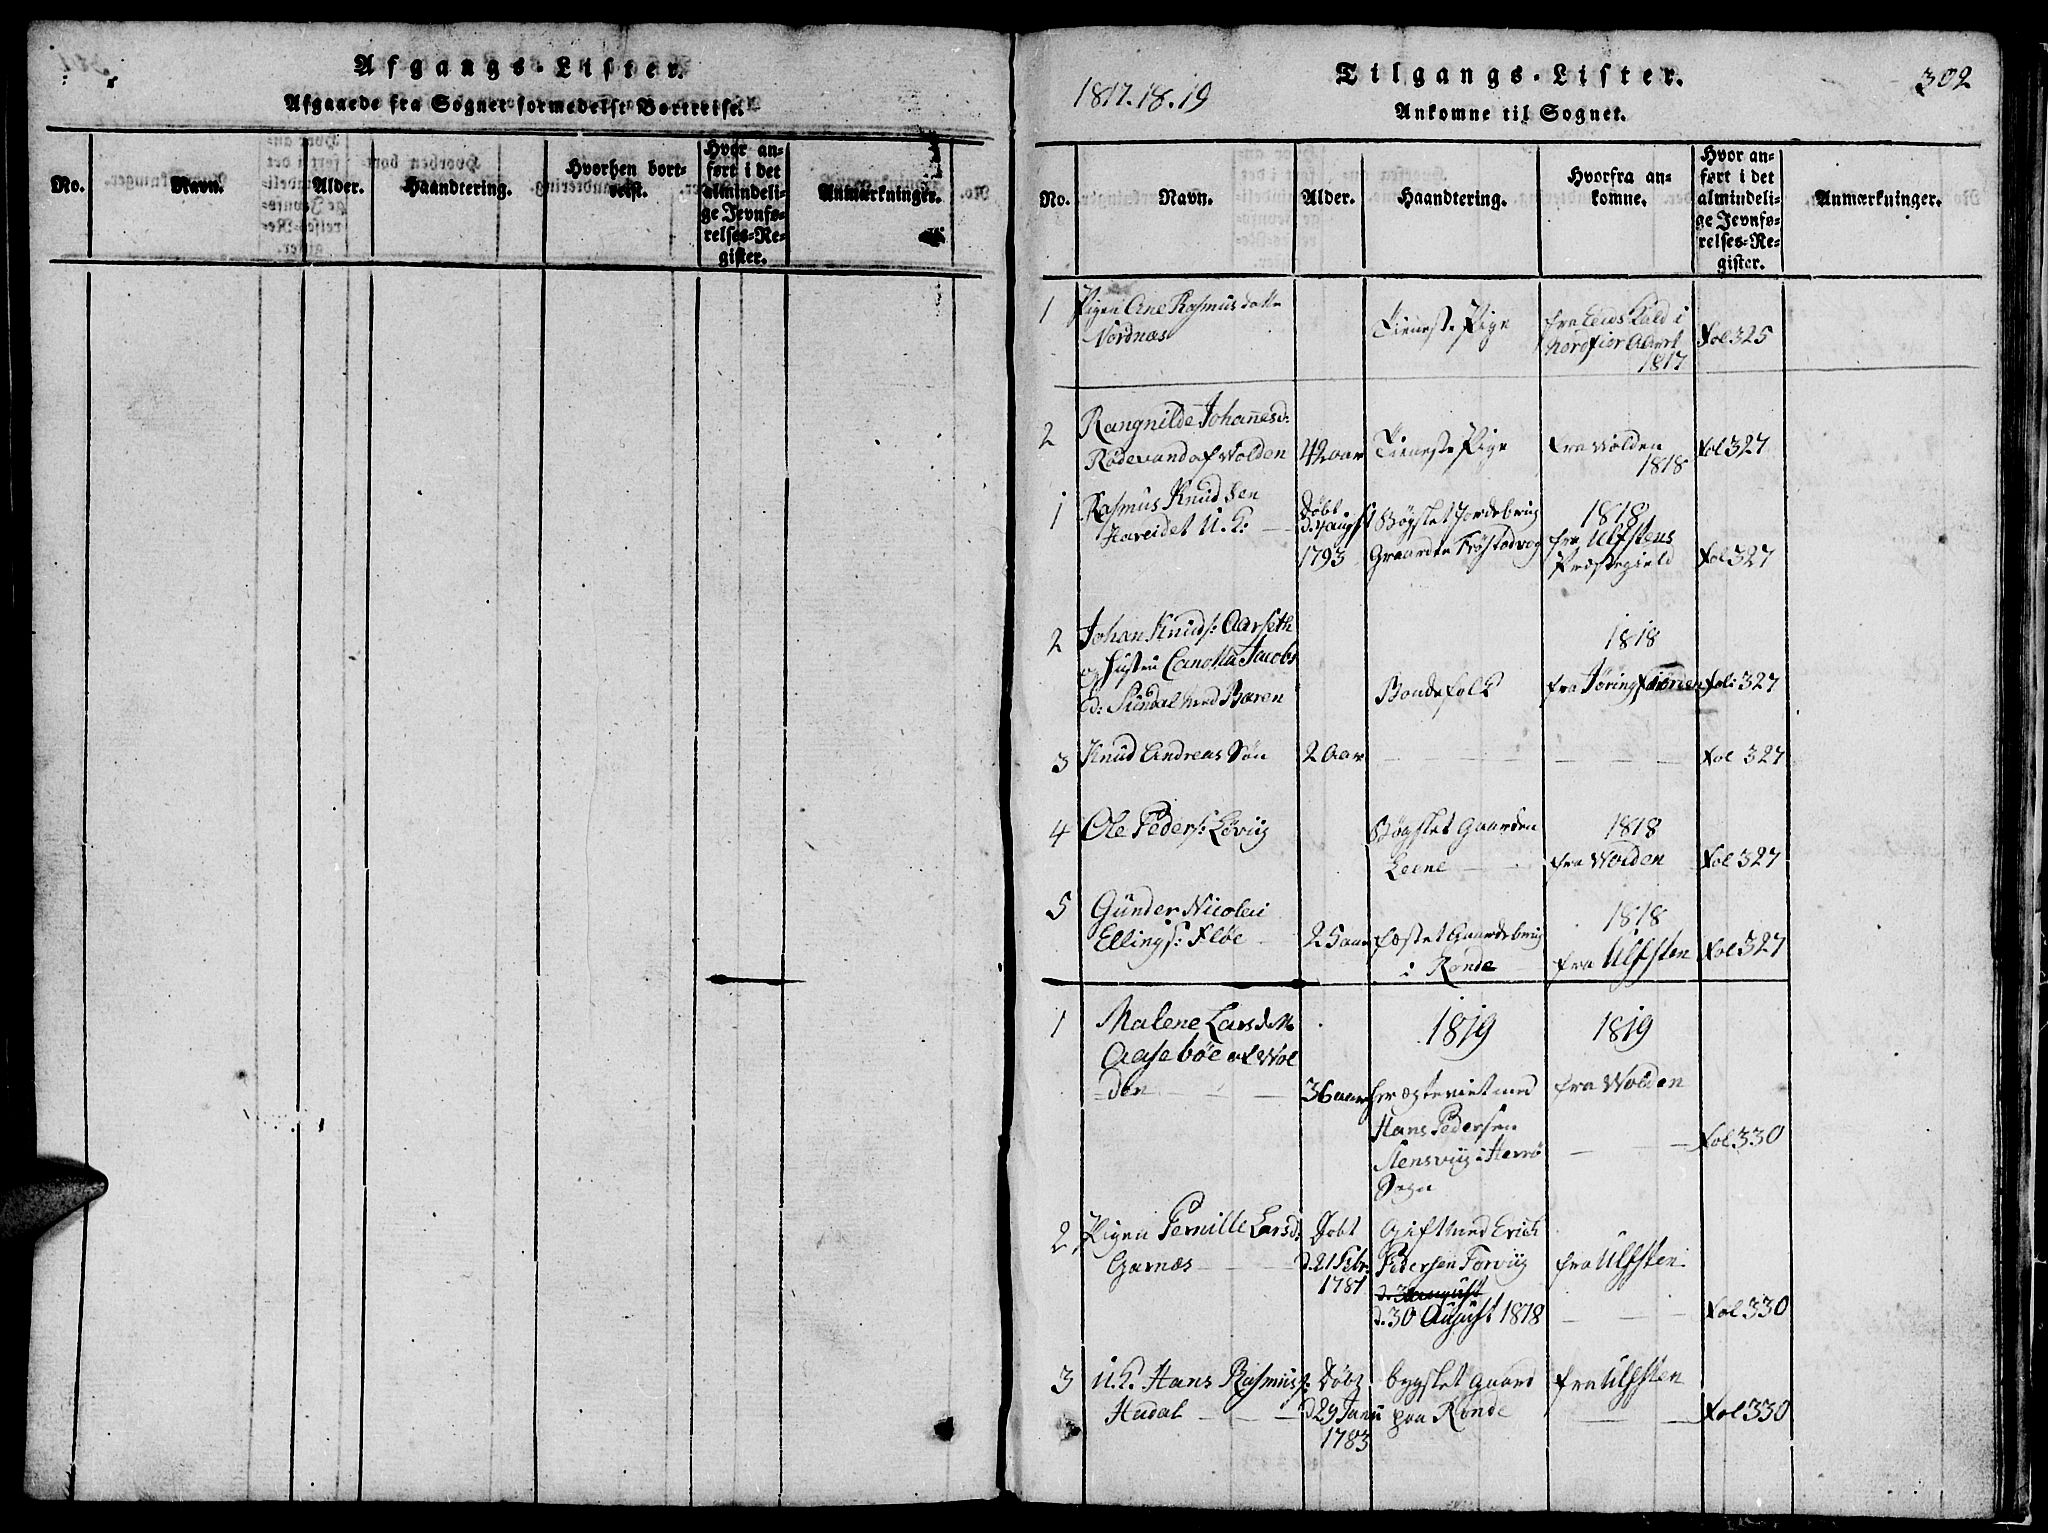 Afgangs-Lister.
Afgaaede fra Sognet formedelst Bortreise.
No.
Navn.
Alder.
Haandtering.
Hvorhen bort-
reist.
Hvor an-
ført i det
almindeli-
ge Jevnfø-
relses-Re-
gister.
Anmærkninger.
1817.18.19
Tilgangs-Lister.
302
Ankomne til Sognet.
No.
Navn.
Alder.
Haandtering.
Hvorfra an-
komne.
Hvor an-
ført i det
almindeli-
ge Jevnfø-
relses-Re-
gister.
Anmærkninger.
1 Pigen Ane Rasmusdatter
Nordnæs
Tieneste Pige
fra Eids Kald i
Nordfior
1817
Fol 325
2 Rangnilde Johannesd:
Rødevand af Wolden
42 aar
Tieneste Pige
fra Wolden
1818
Fol 327
1 Rasmus Knudsen
Hareidet U.K.
Døbt
d. 4 augst
1793
Bøgslet Jordebrug
Gaarden Frøstadvog
1818
fra Ulfstens
Præstegield
Fol 327
2 Johan Knuds: Aarseth
og Hustru Jacobs
d: Sundal med Baren
Bondefolk
1818
fra Jøringfiorden
Fol: 327
3 Knud Andreas Søn
2 Aar
Fol 327
4 Ole Peders: Løviig
Bøgslet Gaarden
Leene
1818
fra Wolden
Fol 327
5 Gunder Nicolai
Ellings: Fløe
25 aar
fæstet Gaardebrug
i Rønde
1818
fra Ulfsten
Fol 327
1 Malene Larsd:
Aasebøe af Wol
-den
36 aar
1819
er ægteviet med
Hans Pedersen
Stensviig i Herrø
Sogn
1819
fra Wolden
Fol 330
2 Pigen Pernille Larsd:
Garnæs
Døbt
d. 21 Febr.
1781
Gift med Erich
Pedersen Torviig
d. 30 August 1818
fra Ulfsten
Fol 330
3 U.K. Hans Rasmuss:
Hudal
Døbt
d 29 Janu
1783
bygslet Gaard
paa Rønde
fra Ulfsten
Fol 330